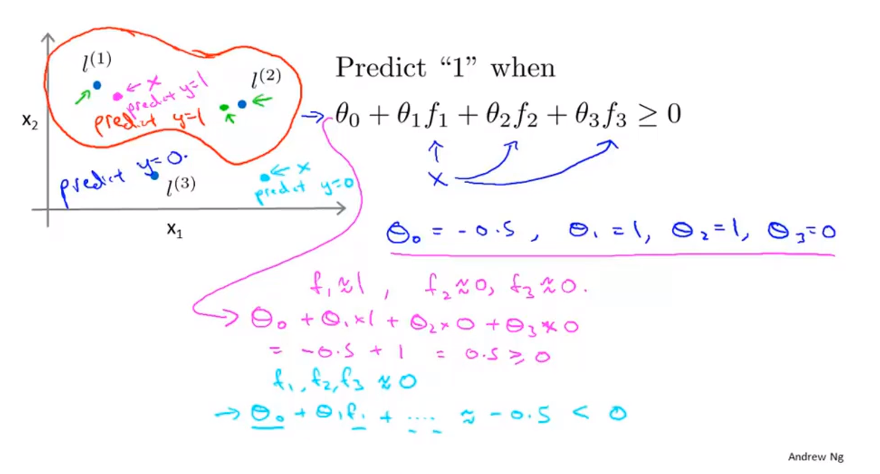 l⁽¹⁾
← x
predict y=1
l⁽²⁾
predict y=1
x₂
predict y=0.
l⁽³⁾
← x
predict y=0
x₁
Predict “1” when
→ θ₀ + θ₁f₁ + θ₂f₂ + θ₃f₃ ≥ 0
x
θ₀ = -0.5 , θ₁ = 1, θ₂ = 1, θ₃ = 0
f₁ ≈ 1 , f₂ ≈ 0, f₃ ≈ 0.
→ θ₀ + θ₁×1 + θ₂×0 + θ₃×0
= -0.5 + 1 = 0.5 ≥ 0
f₁, f₂, f₃ ≈ 0
→ θ₀ + θ₁f₁ + .... ≈ -0.5 < 0
Andrew Ng